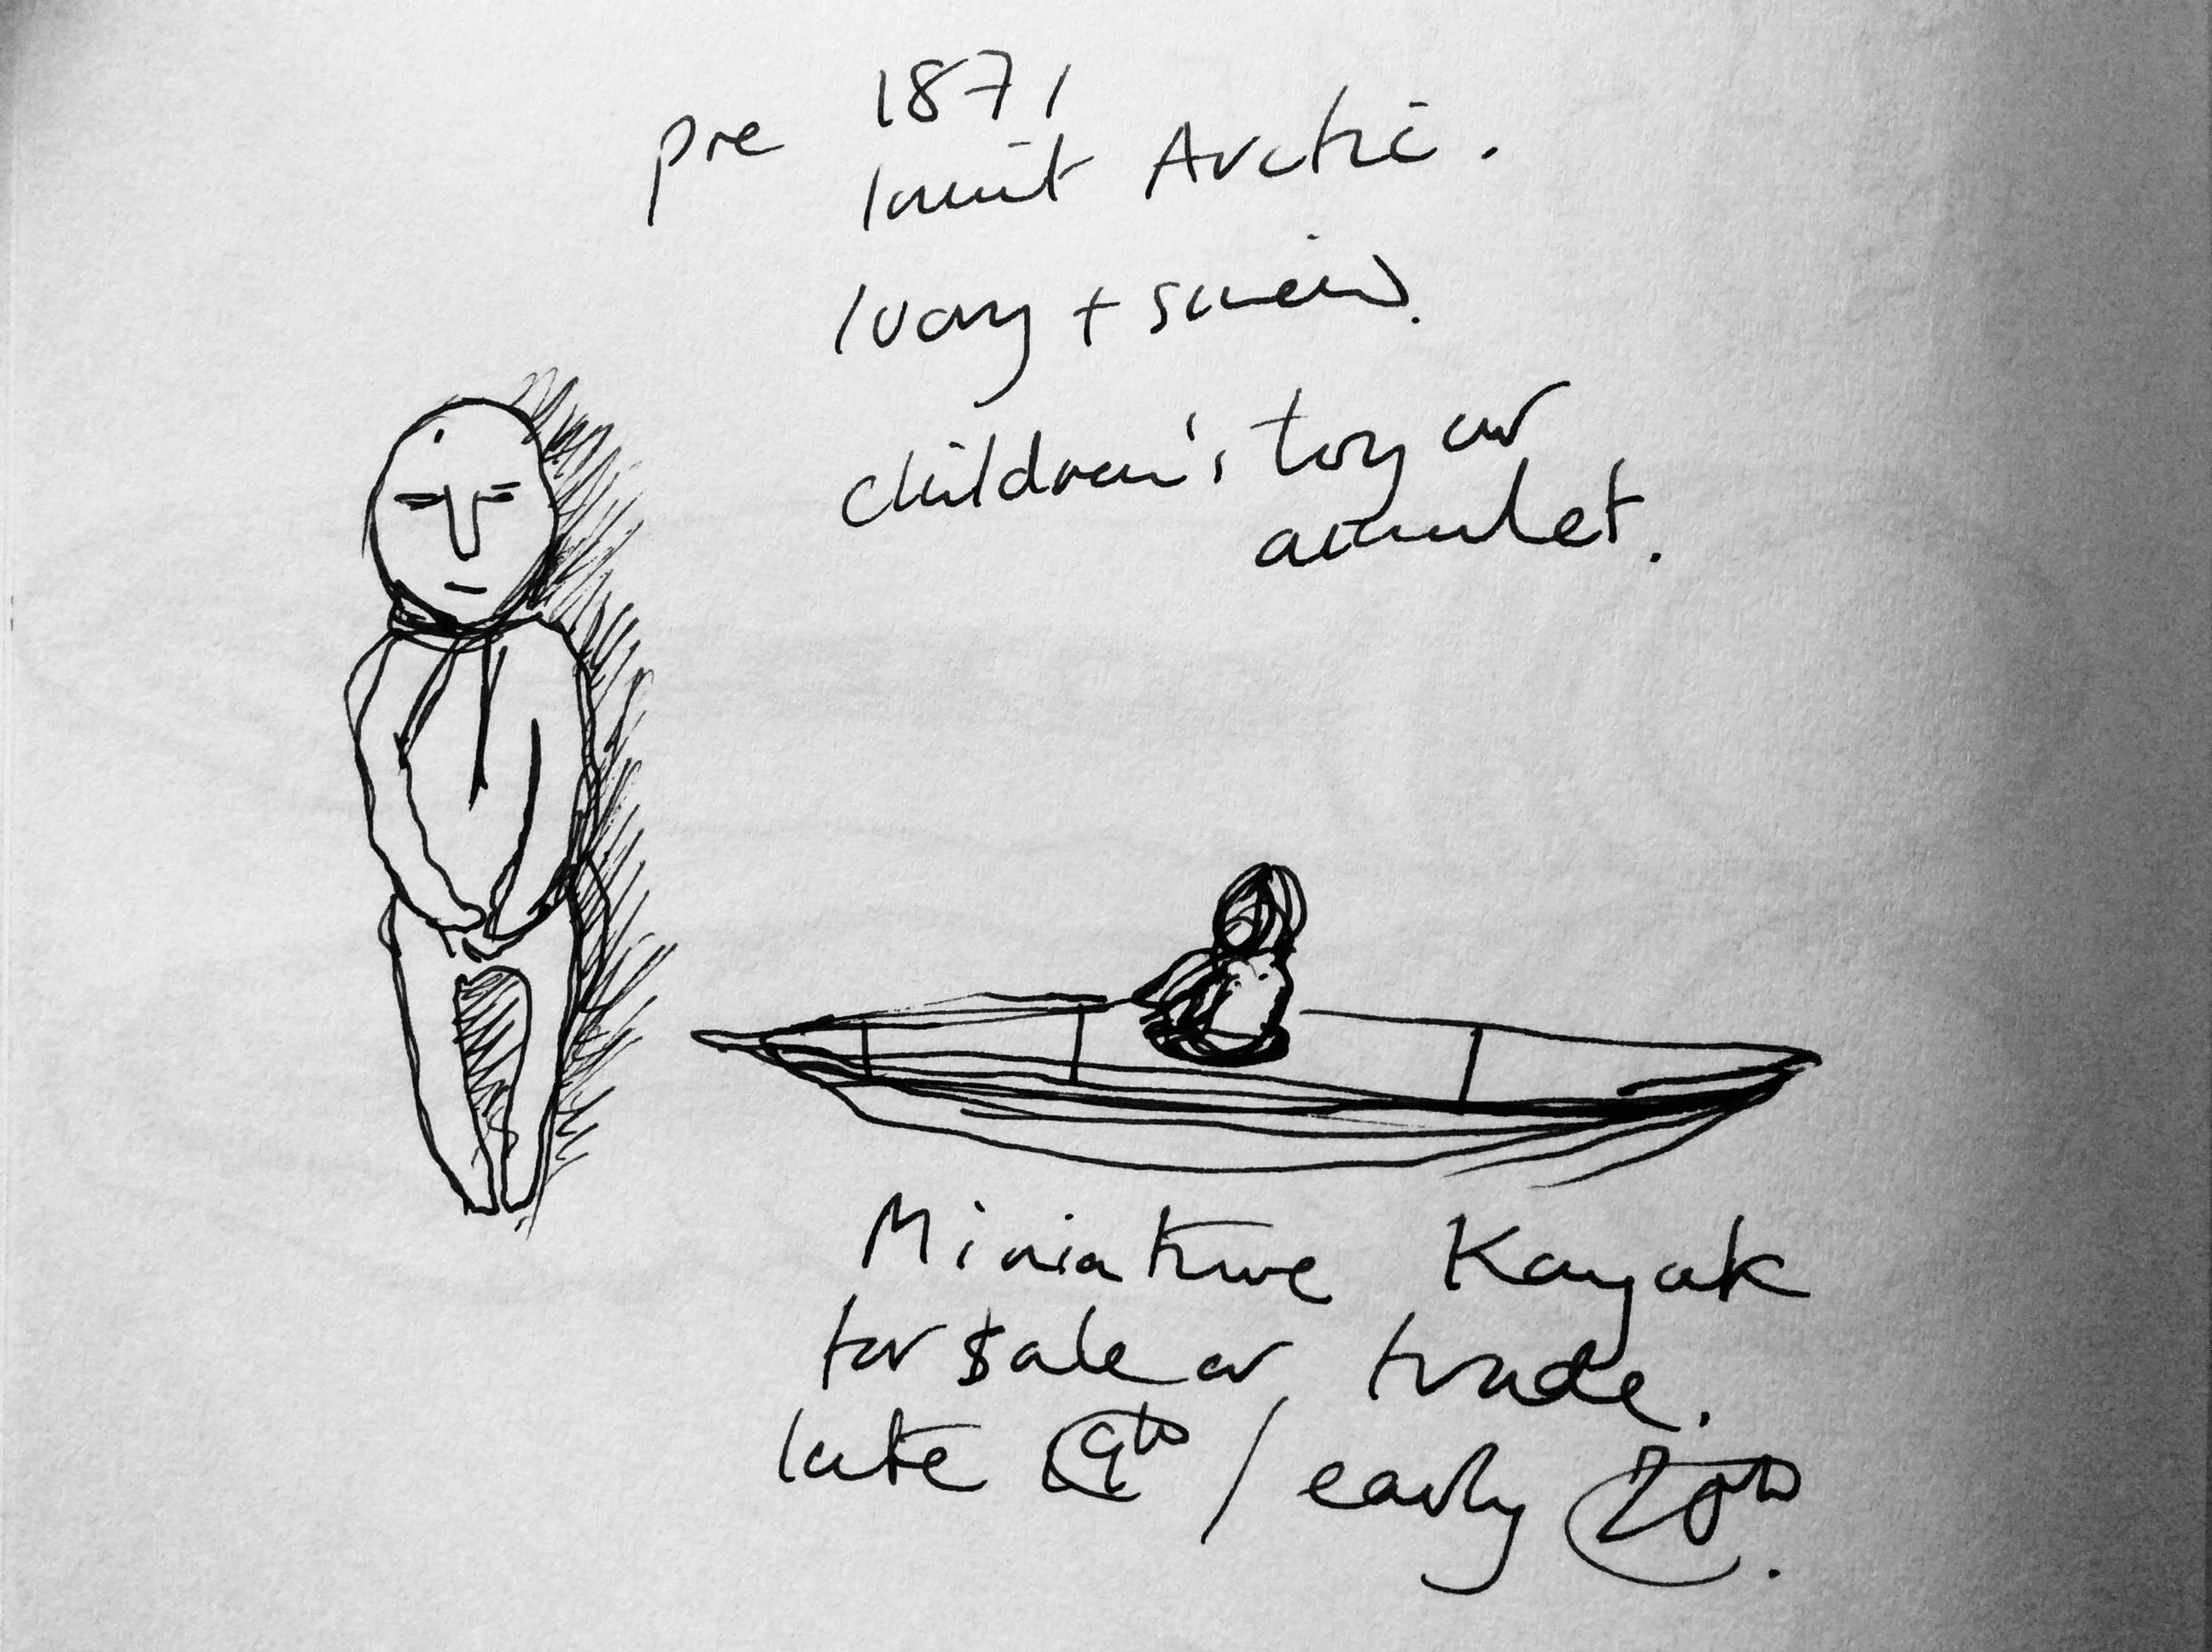 pre 1871
Inuit Arctic.
Ivory + sinew.
children's toy or
amulet.
Miniature Kayak
for sale or trade.
late 19th / early 20th.